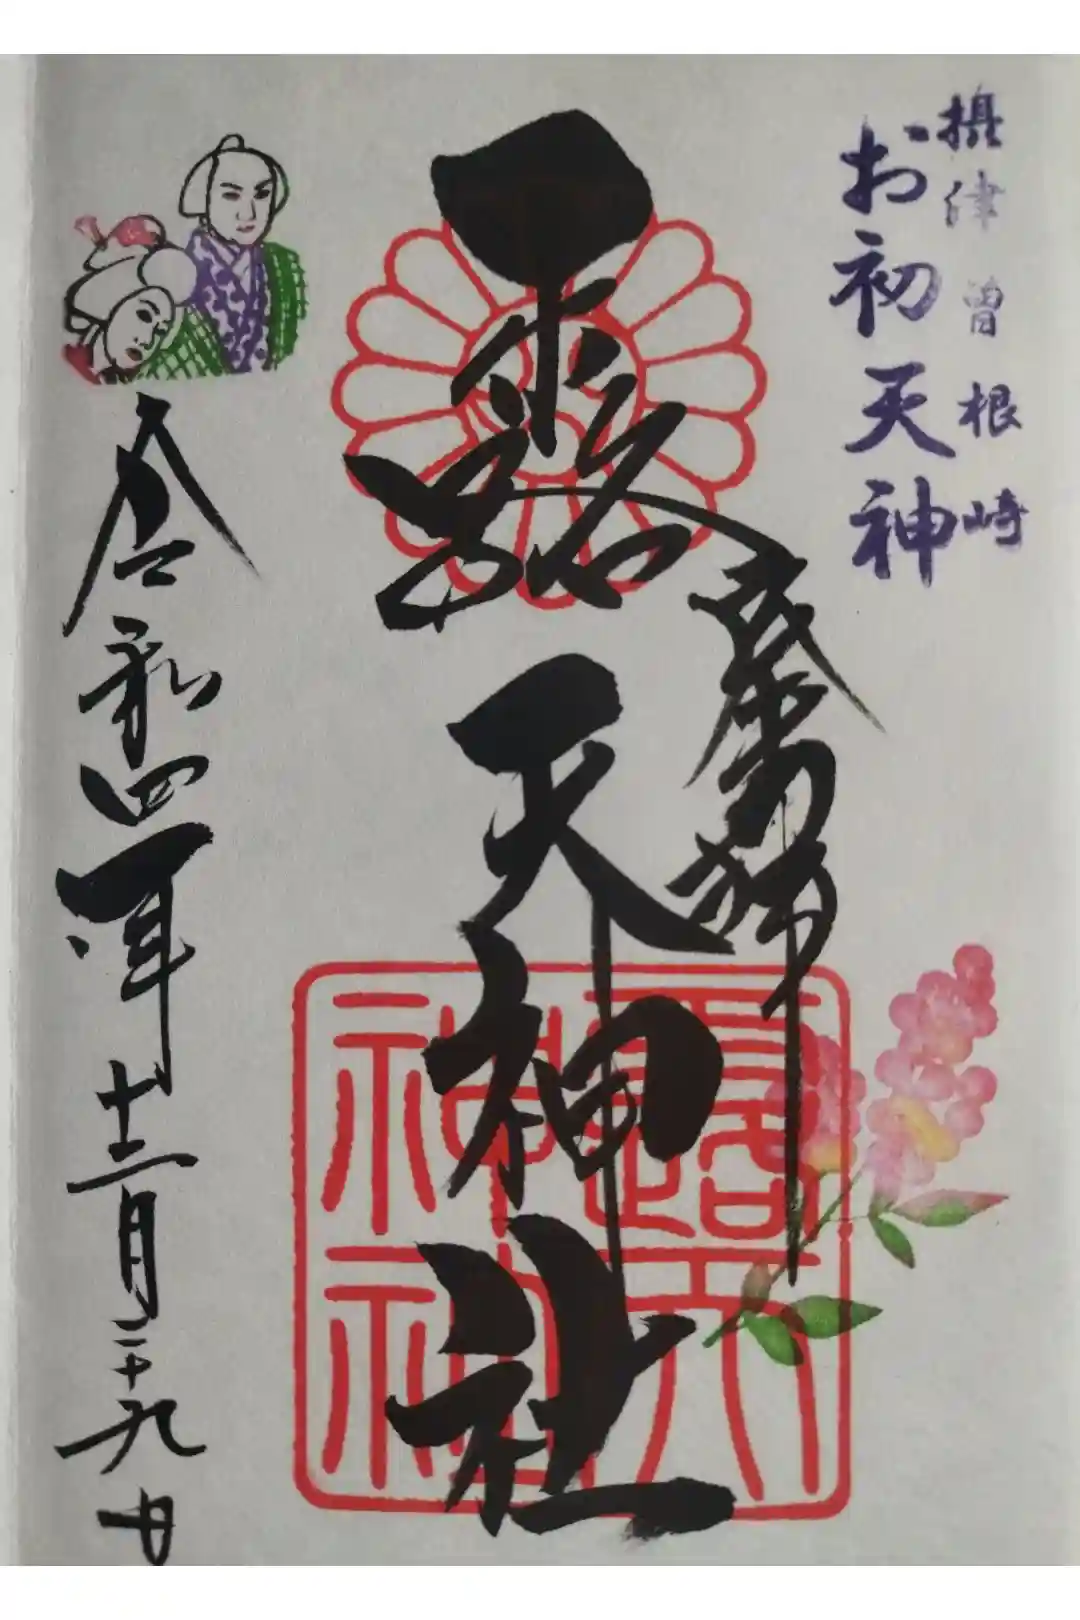 摂津 曽根崎
お初天神
奉拝
露天神社
露天
神社
令和四年十二月二十九日